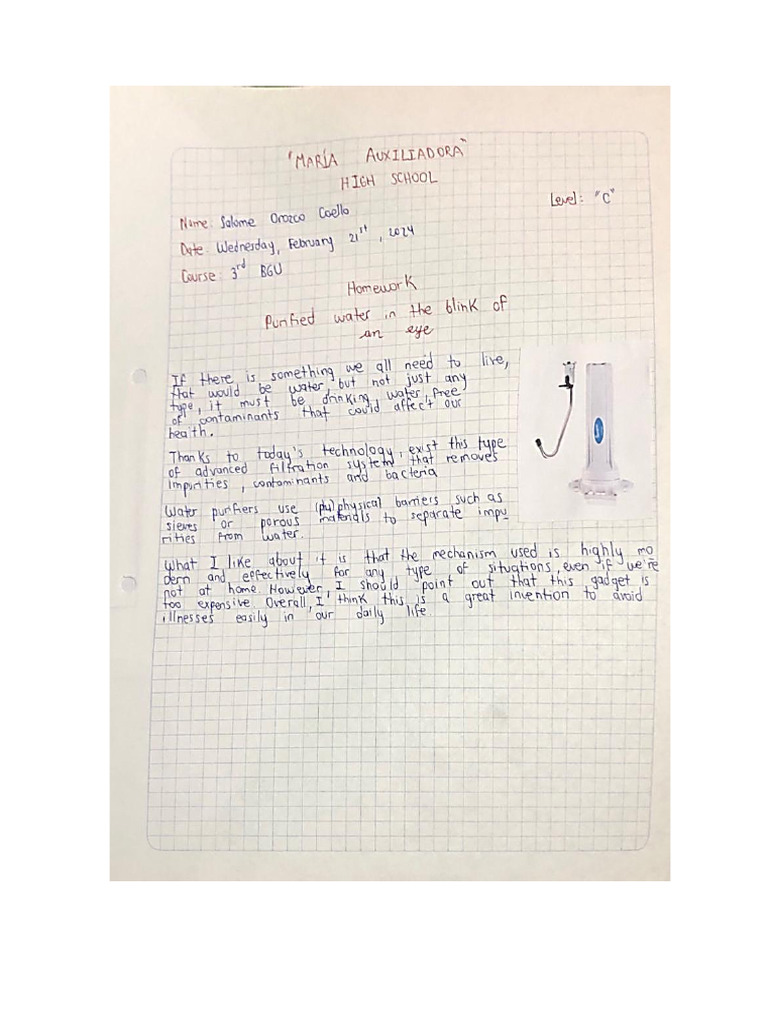 "MARÍA AUXILIADORA"
HIGH SCHOOL
Level: "C"
Name: Salome Orozco Coello
Date: Wednesday, February 21st, 2024
Course: 3rd BGU
Homework
Purified water in the blink of
an eye
If there is something we all need to live,
that would be water, but not just any
type, it must be drinking water, free
of contaminants that could affect our
health.
Thanks to today's technology, exist this type
of advanced filtration system that removes
impurities, contaminants and bacteria
Water purifiers use (pu) physical barriers such as
sieves or porous materials to separate impu
rities from water.
What I like about it is that the mechanism used is highly mo
dern and effectively for any type of situations, even if we're
not at home. However, I should point out that this gadget is
too expensive. Overall, I think this is a great invention to avoid
illnesses easily in our daily life.